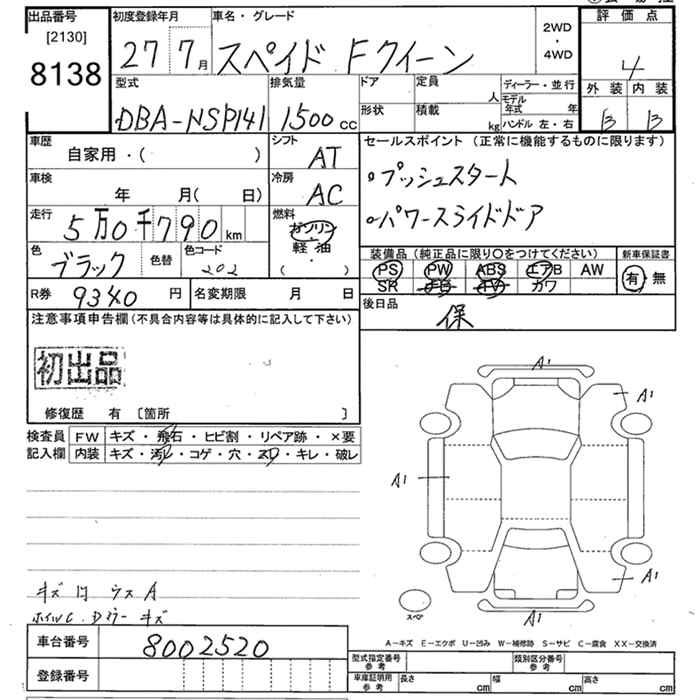 出品番号
[2130]
8138
初度登録年月
27 7月
車名・グレード
スペイド Fクイーン
2WD
・
4WD
評価点
4
外装 内装
B B
型式
DBA-NSP141
排気量
1500 cc
ドア
定員
人
形状
積載
kg
ディーラー・並行
モデル年式 年
ハンドル 左・右
車歴
自家用・( )
シフト
AT
車検
年 月( 日)
冷房
AC
走行
5万0千790 km
燃料
ガソリン
軽・油
( )
色
ブラック
色替
色コード
202
R券 9340 円
名変期限 月 日
セールスポイント (正常に機能するものに限ります)
・プッシュスタート
・パワースライドドア
装備品 (純正品に限り○をつけてください)
PS PW ABS エアB AW
SR ナビ TV カワ
新車保証書
有・無
後日品
保
注意事項申告欄 (不具合内容等は具体的に記入して下さい)
初出品
修復歴 有 [箇所 ]
検査員記入欄
FW キズ・飛石・ヒビ割・リペア跡・×要
内装 キズ・汚レ・コゲ・穴・スレ・キレ・破レ
A1
A1
A1
A1
A1
スペア
キズ 内 ウス A
ホイルC.Dクリーキズ
A-キズ E-エクボ U-凹み W-補修跡 S-サビ C-腐食 XX-交換済
車台番号 8002520
登録番号
型式指定番号
参考
類別区分番号
参考
車庫証明用
参考
長さ cm 幅 cm 高さ cm